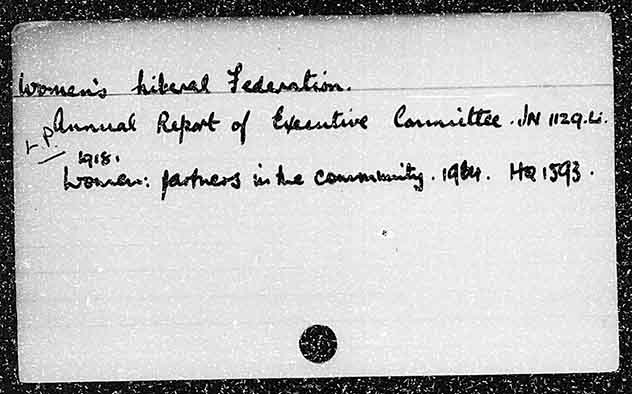 Women's Liberal Federation.
+ P. Annual Report of Executive Committee. JN 1129.L.
1918.
Women: partners in the community. 1964. HQ 1593.